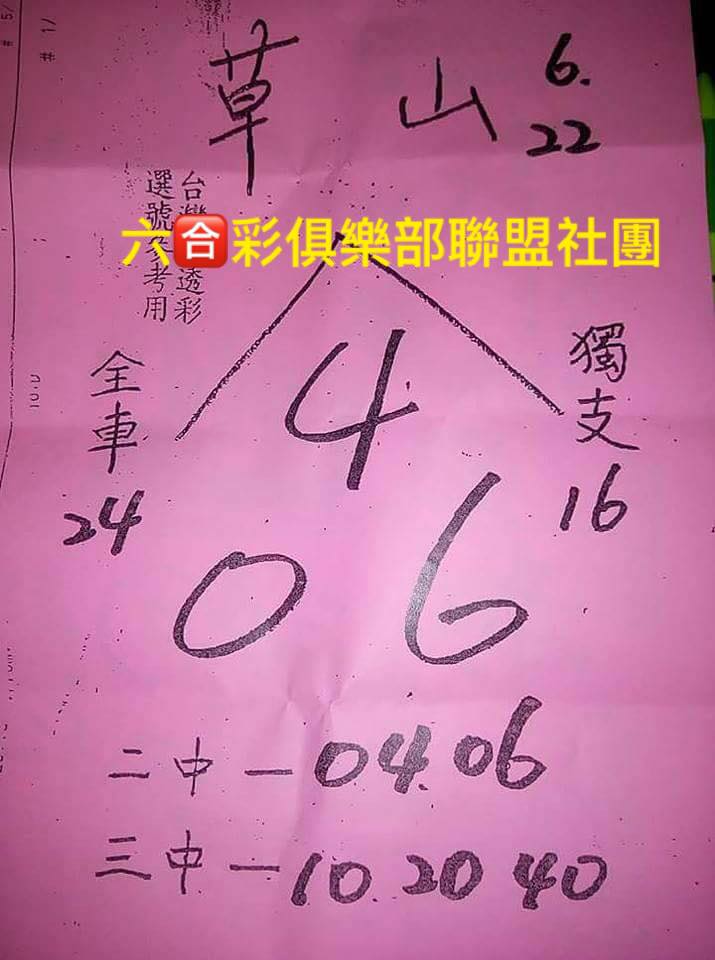 草 山 6.
22
台灣 透彩
選號參考用
六合彩俱樂部聯盟社團
全車
24
4
獨支
16
0 6
二中一04.06
三中一10.20 40